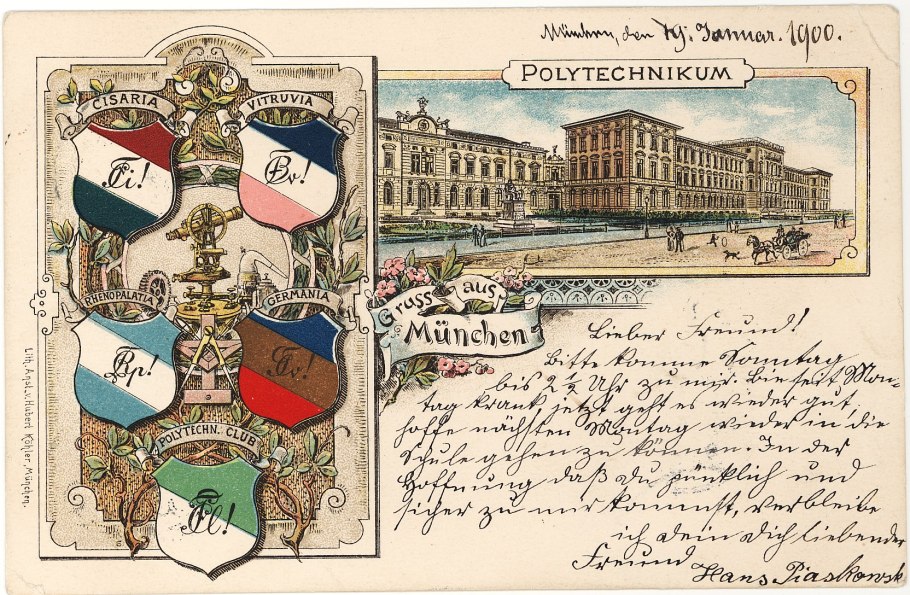 München, den 19. Januar. 1900.
POLYTECHNIKUM
CISARIA
VITRUVIA
RHENOPALATIA
GERMANIA
POLYTECHN. CLUB
Gruss aus
München
Lieber Freund!
Bitte komme Sonntag
bis 2 ½ Uhr zu mir. Bin seit Mon-
tag krank jetzt geht es wieder gut,
hoffe nächsten Montag wieder in die
Schule gehen zu können. In der
Hoffnung daß du pünklich und
sicher zu mir kommst, verbleibe
ich dein dich liebender
Freund
Hans Piaskowsk
Lith. Anst. v. Hubert Köhler, München.